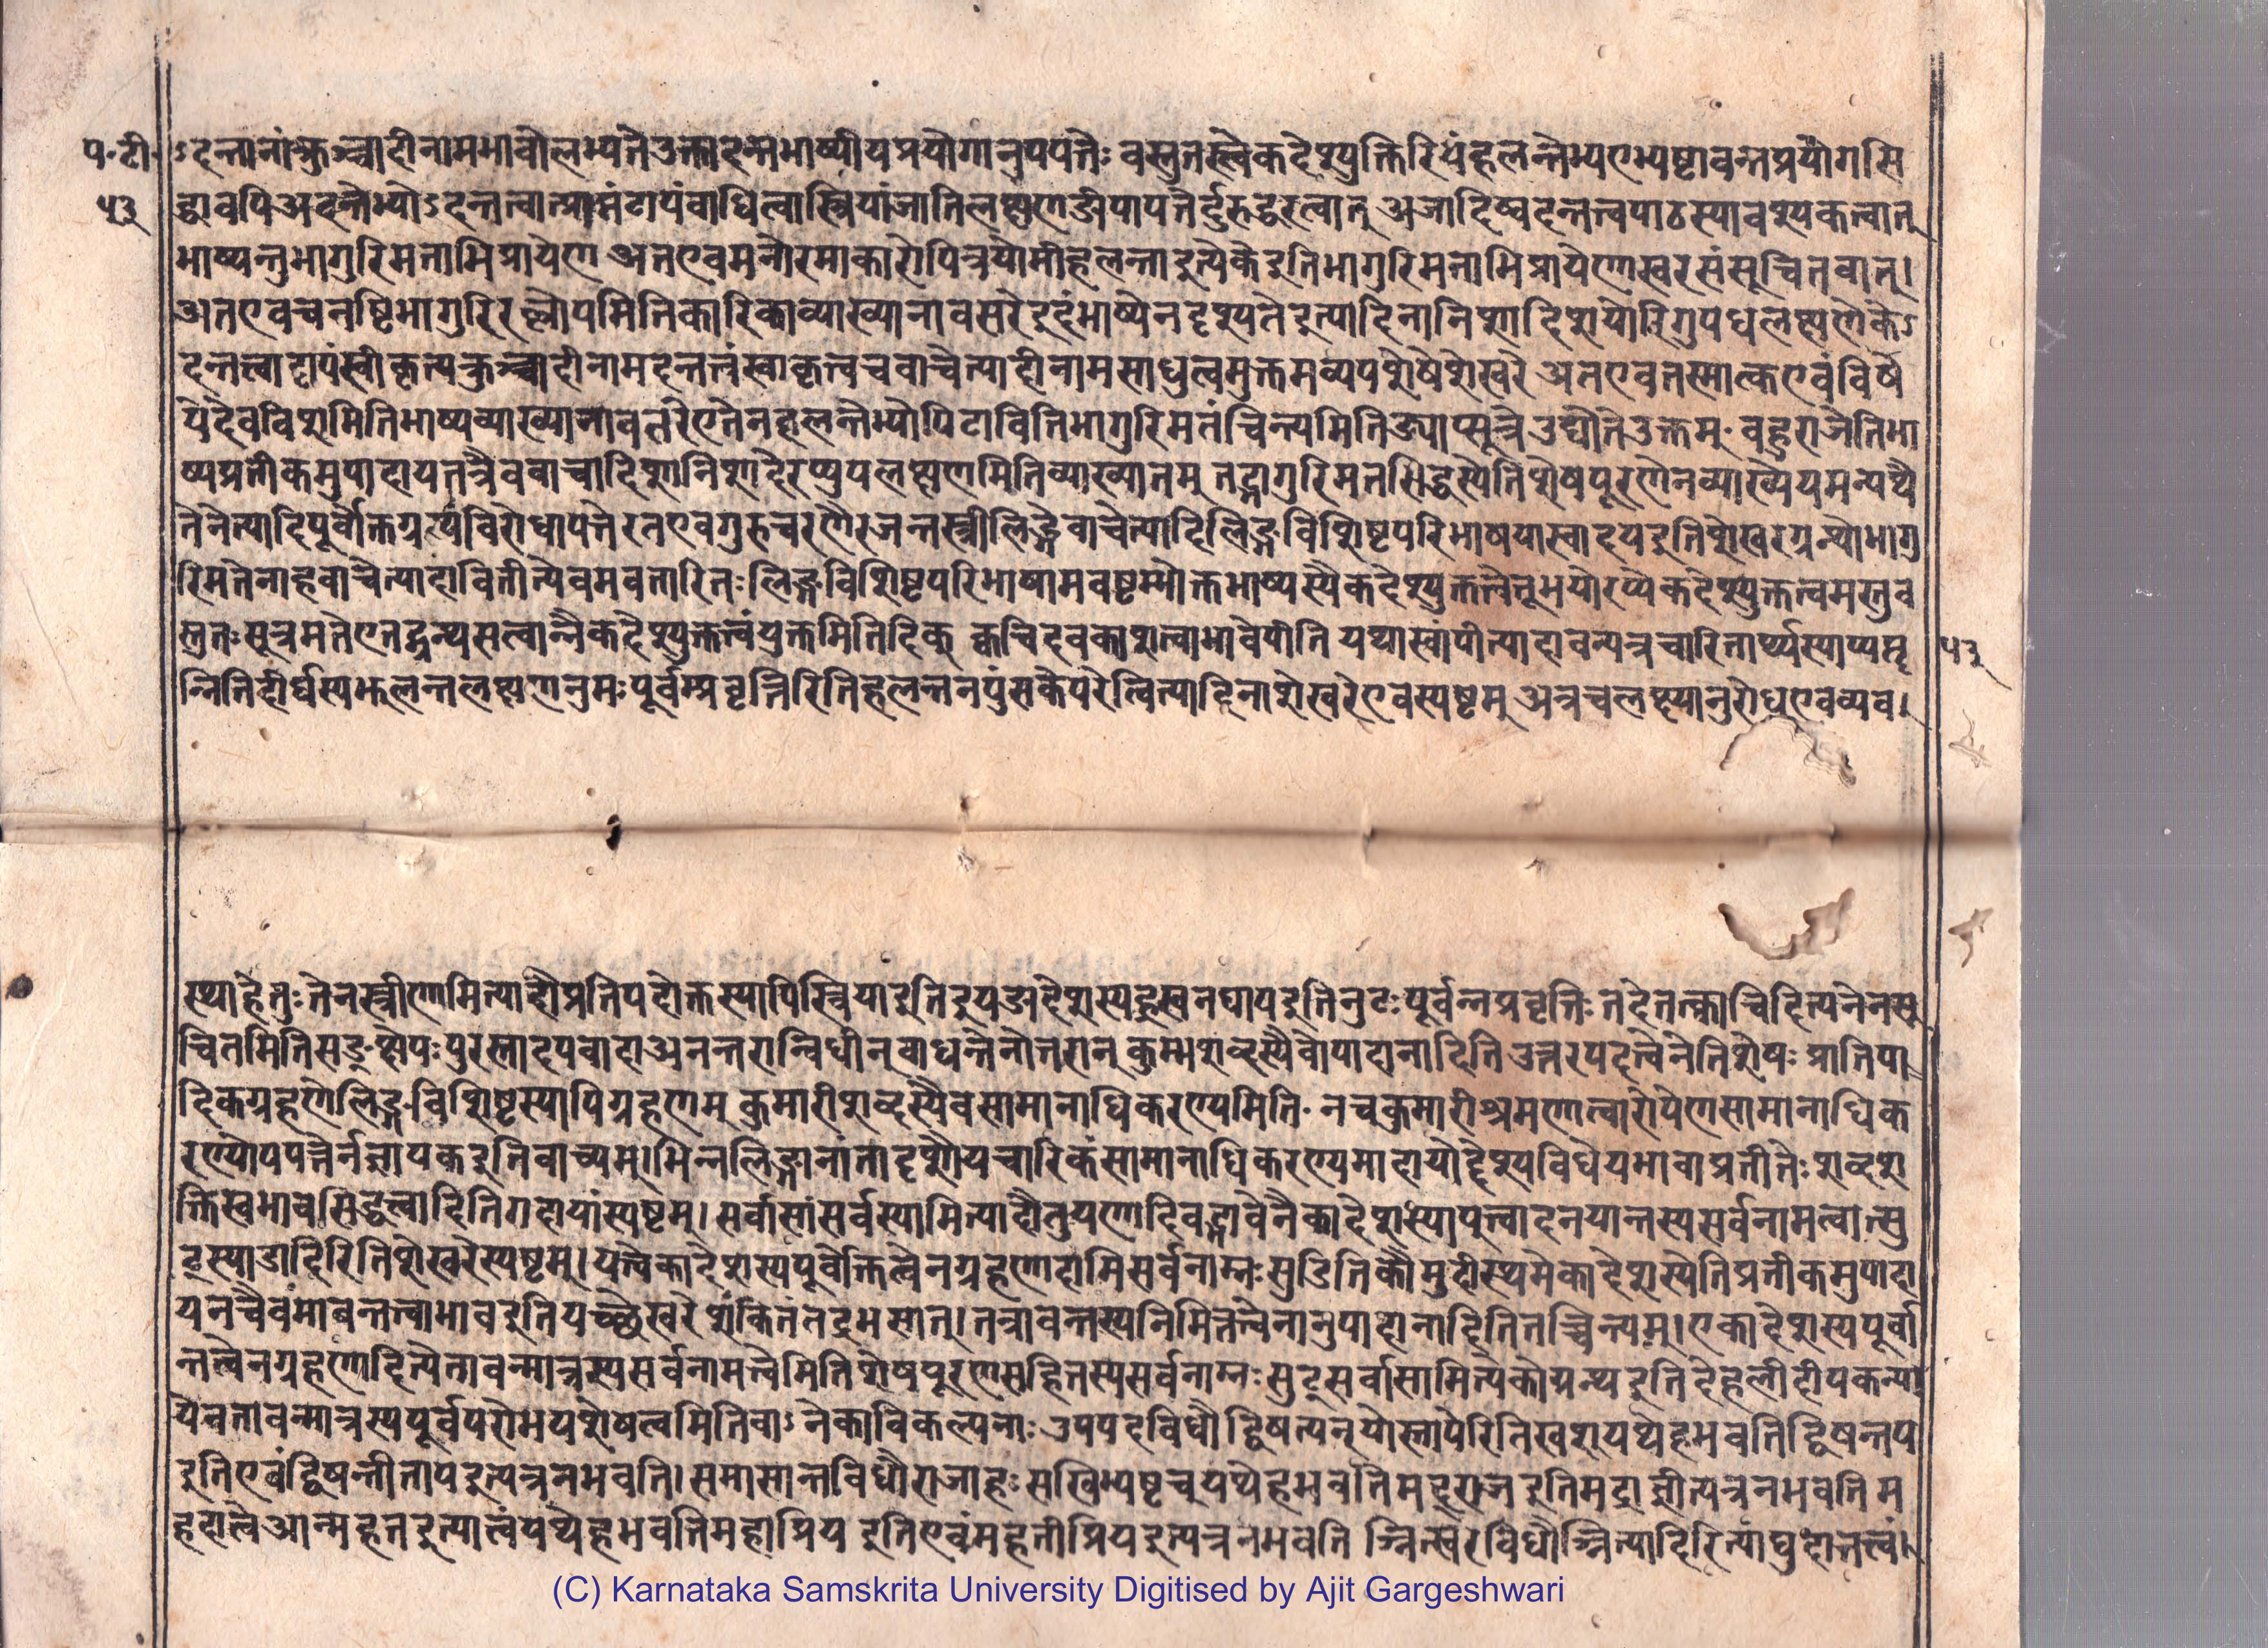 प॰टी॰ ऽदन्तानांक्रुञ्चादीनामभावोलभ्यतेउक्तादन्तभाष्यीयप्रयोगानुपपत्तेः वस्तुतस्त्वेकदेश्युक्तिरियंहलन्तेभ्यएभ्यष्टाबन्तप्रयोगसि
५३ द्धावपिअदन्तेभ्योऽदन्तत्वात्प्राप्तंटापंबाधित्वास्त्रियांजातिलक्षणङीपापत्तेर्दुरुद्धरत्वात् अजादिष्वदन्तत्वपाठस्यावश्यकत्वात्
भाष्यन्तुभागुरिमताभिप्रायेण अतएवमनोरमाकारोपित्रयोमीहलन्ताइत्येकेइतिभागुरिमताभिप्रायेणेस्वरसंसूचितवात्।
अतएवचवष्टिभागुरिरल्लोपमितिकारिकाव्याख्यानावसरेइदंभाष्येनदृश्यतेइत्यादिनानिशादिशयोरिगुपधलक्षणेकेऽ
दन्तत्वाट्टापंस्वीकृत्यक्रुञ्चादीनामदन्तत्वंस्वाकृत्वचवाचेत्यादीनामसाधुत्वमुक्तमव्ययशेषेशेखरे अतएवतस्मात्कएवंविषे
येदेवविशामितिभाष्यव्याख्यानावतरेएतेनहलन्तेभ्योपिटावितिभागुरिमतंचिन्त्यमितिङ्याप्सूत्रेउद्योतेउक्तम्॰ बहुराजेतिभा
ष्यप्रतीकमुपादायतत्रैववाचादिशानिशादेरप्युपलक्षणमितिव्याख्यातम् तद्भागुरिमतसिद्धस्येतिशेषपूरणेनव्याख्येयमन्यथै
तेनेत्यादिपूर्वोक्तग्रन्थविरोधापत्तेरतएवगुरुचरणैरजन्तस्त्रीलिङ्गेवाचेत्यादिलिङ्गविशिष्टपरिभाषयास्वादयइतिशेखरग्रन्थोभागु
रिमतेनाहवाचेत्यादावितीत्येवमवतारितः लिङ्गविशिष्टपरिभाषामवष्टम्भोक्तभाष्यस्यैकदेश्युक्तत्वेतूभयोरप्येकदेश्युक्तत्वमस्तुव
स्तुतःसूत्रमतेएतद्ग्रन्थसत्वान्नैकदेश्युक्तत्वंयुक्तमितिदिक् क्वचिदवकाशत्वाभावेपीति यथास्वांपीत्यादावन्यत्रचारितार्थ्यस्याप्यप्तृ ५३
न्नितिदीर्घस्यझलन्तलक्षणनुमःपूर्वम्प्रवृत्तिरितिहलन्तनपुंसकेपरेत्वित्यादिनाशेखरेएवस्पष्टम् अत्रचलक्ष्यानुरोधएवव्यव।
स्थाहेतुःतेनस्त्रीणामित्यादौप्रतिपदोक्तस्यापिस्त्रियाइतिइयङादेशस्यह्रस्वनद्यापइतिनुटःपूर्वन्नप्रवृत्तिः तदेतत्क्वाचिदित्यनेनसू
चितमितिसङ्क्षेपःपुरस्तादपवादाअनन्तरान्विधीन्बाधन्तेनोत्तरान् कुमाशब्दस्यैवोपादानादिति उत्तरपदत्वेनेतिशेषः प्रातिपा
दिकग्रहणेलिङ्गविशिष्टस्यापिग्रहणम् कुमारीशब्दस्यैवसामानाधिकरण्यमिति॰ नचकुमारीश्रमणात्वारोपेणसामानाधिक
रण्योपपत्तेर्नज्ञापकइतिवाच्यम्।भिन्नलिङ्गानांतादृशौपचारिकंसामानाधिकरण्यमादायोद्देश्यविधेयभावाप्रतीतेःशब्दश
क्तिस्वभावसिद्धत्वादितिगदायांस्पष्टम्। सर्वासांसर्वस्यामित्यादौतुयणादिवद्भावेनैकादेशस्यापूत्त्वादनयान्तस्यसर्वनामत्वात्सु
ट्स्याडादिरितिशेखरेस्पष्टम्।यत्त्वेकादेशस्यपूर्वोक्तित्वेनग्रहणादामिसर्वनाम्नःसुडितिकौमुदीस्थमेकादेशस्येतिप्रतीकमुपादा
यनचैवंमाबन्तत्वाभावइतियच्छेखरेशंकितंतद्रभसात्।तत्राबन्तस्यनिमित्तत्वेनानुपादानादितितच्चिन्त्यम्।एकादेशस्यपूर्वा
न्तत्वेनग्रहणादित्येतावन्मात्रस्यसर्वनामत्वेमितिशेषपूरणसहितस्यसर्वनाम्नःसुट्सर्वासामित्येकोग्रन्थइतिदेहलीदीपकन्या
येनतावन्मात्रस्यपूर्वपरोभयशेषत्वमितिवाऽनेकाविकल्पनाः उपपदविधौद्विषत्परयोस्तापेरितिखशयथेहभवतिद्विषन्तप
इतिएवंद्विषन्तीतापइत्यत्रनभवति।समासान्तविधौराजाहःसखिभ्यष्टच्यथेहभवतिमद्रराजइतिमद्राज्ञीत्यत्रनभवतिम
हदात्वेआन्महतइत्यात्वंयथेहभवतिमहाप्रिय इतिएवंमहतीप्रियइत्यत्रनभवति ञ्नित्स्वरविधौञ्नित्यादिरित्याद्युदात्तत्वं।
(C) Karnataka Samskrita University Digitised by Ajit Gargeshwari